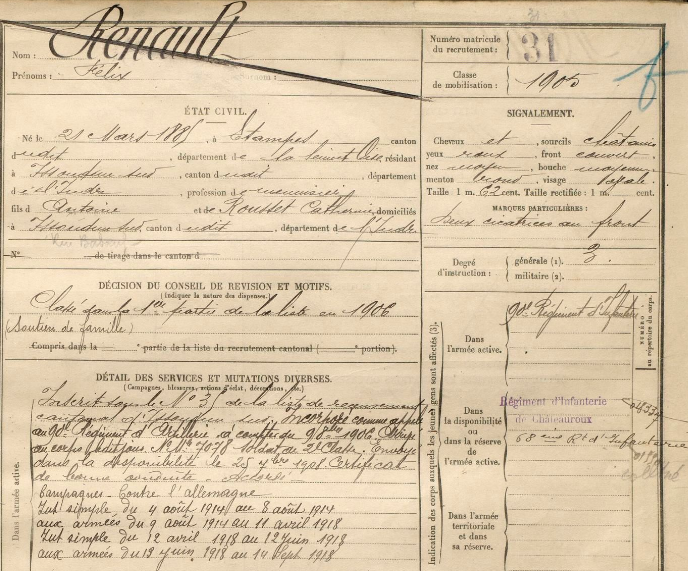 Renault
Nom :
Prénoms : Félix
Numéro matricule du recrutement : 31
Classe de mobilisation : 1905
ÉTAT CIVIL.
Né le 21 Mars 188 , à Étampes canton
dudit , département de la Seine et Oise, résidant
à Issoudun sud , canton dudit département
de l'Indre , profession de
fils d Antoine et de Rousset Catherine, domiciliés
à Issoudun sud canton dudit , département de l'Indre
N° de tirage dans le canton d
SIGNALEMENT.
Cheveux et , sourcils châtains
yeux roux , front couvert
nez moyen , bouche moyenne
menton rond , visage ovale.
Taille : 1 m. 62 cent. Taille rectifiée : 1 m. cent.
MARQUES PARTICULIÈRES :
deux cicatrices au front
Degré d'instruction : générale (1). 3
militaire (2).
DÉCISION DU CONSEIL DE REVISION ET MOTIFS.
(Indiquer la nature des dispenses.)
Classé dans la 1ère partie de la liste en 1906
(Soutien de famille)
Compris dans la e partie de la liste du recrutement cantonal ( e portion).
DÉTAIL DES SERVICES ET MUTATIONS DIVERSES.
(Campagnes, blessures, actions d'éclat, décorations, etc.)
Inscrit sous le N° 35 de la liste de recrutement
cantonal d'Issoudun sud, incorporé comme appelé
au 90e Régiment d' à compter du 9 1906.
au corps N° Mle 7078 Soldat de 2e Classe. Envoyé
dans la disponibilité le 25 7bre 1908 Certificat
de bonne conduite "Accordé"
Campagnes - Contre l'allemagne
Int simple du 4 août 1914 au 8 août 1914
aux armées du 9 août 1914 au 11 avril 1918
Int simple du 12 avril 1918 au 12 juin 1918
aux armées du 13 juin 1918 au 14 Sept 1918
Dans l'armée active.
Indication des corps auxquels les jeunes gens sont affectés (3).
Dans l'armée active.
90e Régiment d'Infanterie
NUMÉRO au répertoire du corps.
Dans la disponibilité ou dans la réserve de l'armée active.
Régiment d'Infanterie
de Châteauroux
68ème Rt d'Infanterie
Dans l'armée territoriale et dans sa réserve.